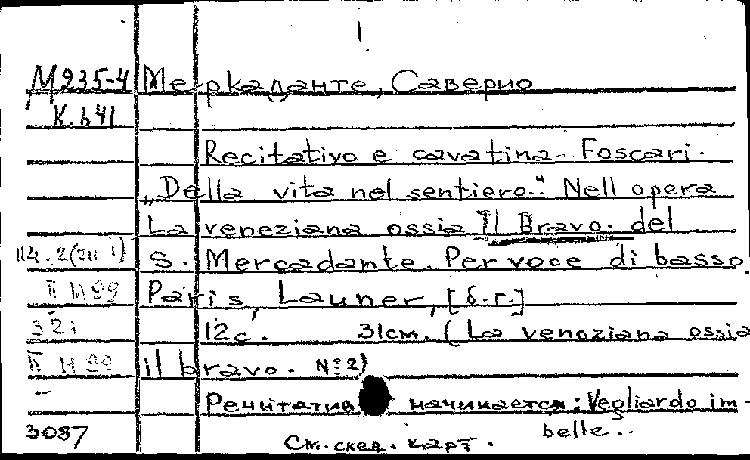 М235-4 Меркаданте, Саверио
К.641
Recitativo e cavatina Foscari.
„Della vita nel sentiero." Nell opera
La veneziana ossia Il Bravo. del
S. Mercadante. Per voce di basso.
Paris, Launer, [б.г.]
12с. 31см. (La veneziana ossia
il bravo. №2)
Речитатив начинается: Vegliardo im-
belle...
3087 См. след. карт.